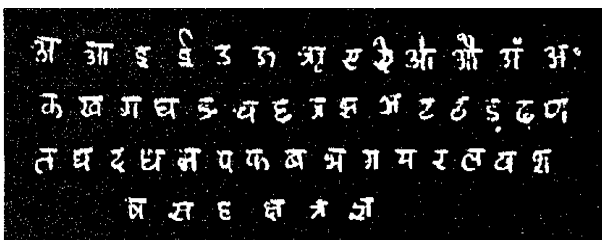 अ आ इ ई उ ऊ ऋ ए ऐ ओ औ अं अः
क ख ग घ ङ च छ ज झ ञ ट ठ ड़ ढ़ ण
त थ द ध न प फ ब भ म य र ल व श
ष स ह क्ष त्र ज्ञ